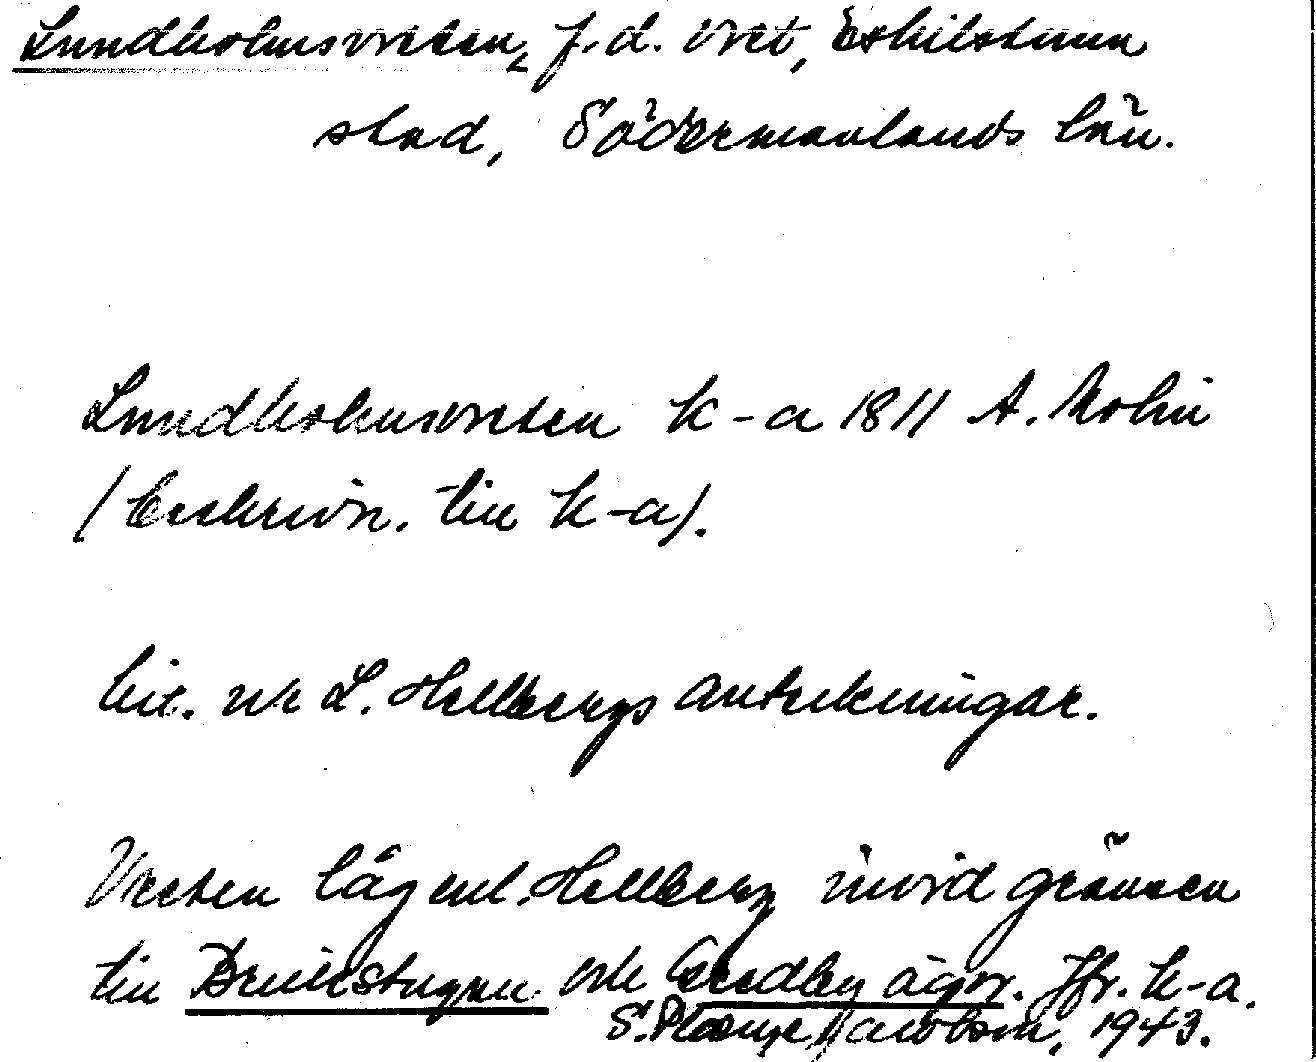 Lundholmsvreten, f.d. vret, Eskilstuna
stad, Södermanlands län.
Lundholmsvreten k-a 1811 A. Molin
(Beskrivn. till k-a).
Lit. ur L. Hellbergs anteckningar.
Vreten låg enl. Hellberg invid gränsen
till Bruksstugan och Gredby ägor. Jfr. k-a.
S. Jacobson, 1943.